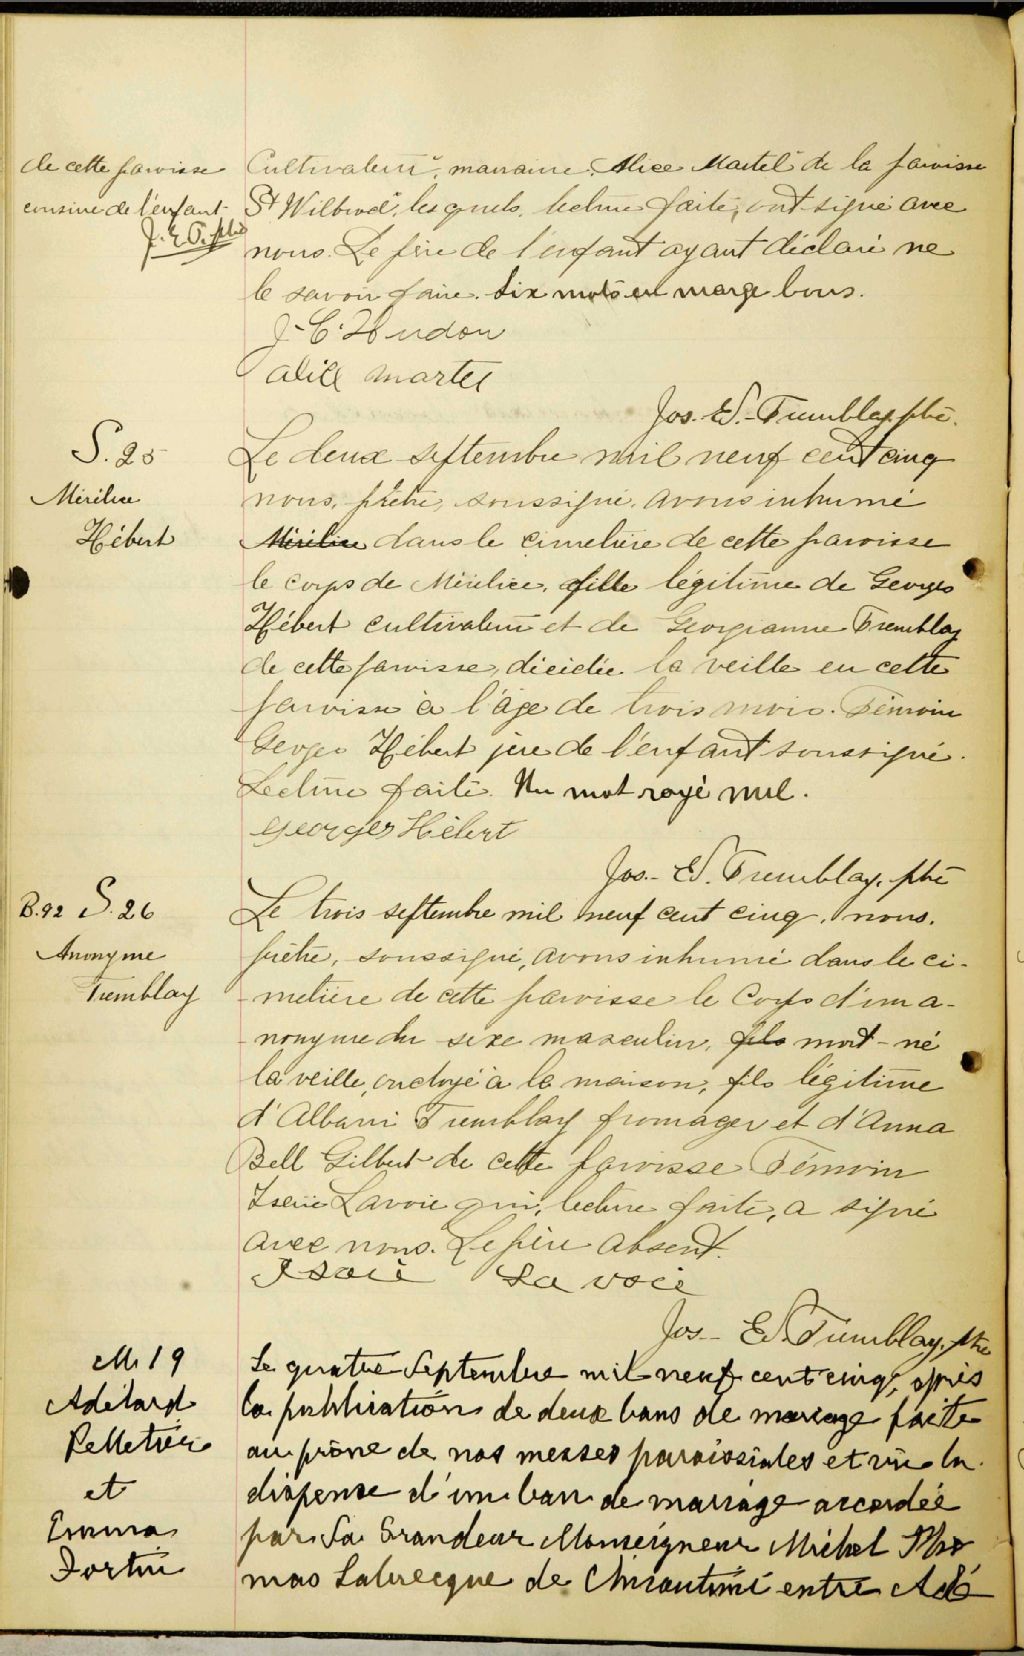 de cette paroisse
cousine de l'enfant
J. E. T. ptre
Cultivateur, marraine, Alice Martel de la paroisse
St Wilbrod, lesquels, lecture faite, ont signé avec
nous. Le père de l'enfant ayant déclaré ne
le savoir faire. Six mots en marge bons.
J. C. Hudon
alice martel
Jos. E. Tremblay, ptre.
S. 25
Mérilice
Hébert
Le deux septembre mil neuf cent cinq
nous, prêtre, soussigné, avons inhumé
Mérilice dans le cimetière de cette paroisse
le corps de Mérilice, fille légitime de Georges
Hébert cultivateur et de Georgianne Tremblay
de cette paroisse, décédée la veille en cette
paroisse à l'âge de trois mois. Témoin
Georges Hébert père de l'enfant soussigné.
Lecture faite. Un mot rayé nul.
Georges Hébert
Jos. E. Tremblay, ptre
B.92 S. 26
Anonyme
Tremblay
Le trois septembre mil neuf cent cinq, nous,
prêtre, soussigné, avons inhumé dans le ci-
-metière de cette paroisse le corps d'un a-
-nonyme du sexe masculin, fils mort-né
la veille, ondoyé à la maison, fils légitime
d'Albani Tremblay fromager et d'Anna
Bell Gilbert de cette paroisse Témoin
Isaïe Lavoie qui, lecture faite, a signé
avec nous. Le père absent.
Isaie Lavoie
Jos. E. Tremblay, ptre
M 19
Adélard
Pelletier
et
Emma
Fortin
Le quatre Septembre mil neuf cent cinq, après
la publication de deux bans de mariage faite
au prône de nos messes paroissiales et vu la
dispense d'un ban de mariage accordée
par Sa Grandeur Monseigneur Michel Tho
mas Labrecque de Chicoutimi entre Adé